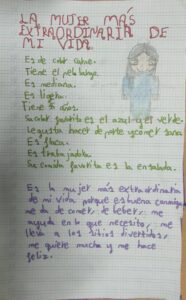 LA MUJER MÁS
EXTRAORDINARIA DE
MI VIDA.
Es de color carne.
Tiene el pelo largo.
Es mediana.
Es ligera.
Tiene años.
Su color favorito es el azul y el verde.
Le gusta hacer deporte y comer sano
Es flaca.
Es trabajadora.
Su comida favorita es la ensalada.
Es la mujer más extraordinaria
de mi vida porque es buena conmigo
me da de comer, de beber, me
ayuda en lo que necesito, me
lleva a los sitios divertidos,
me quiere mucho y me hace
feliz.